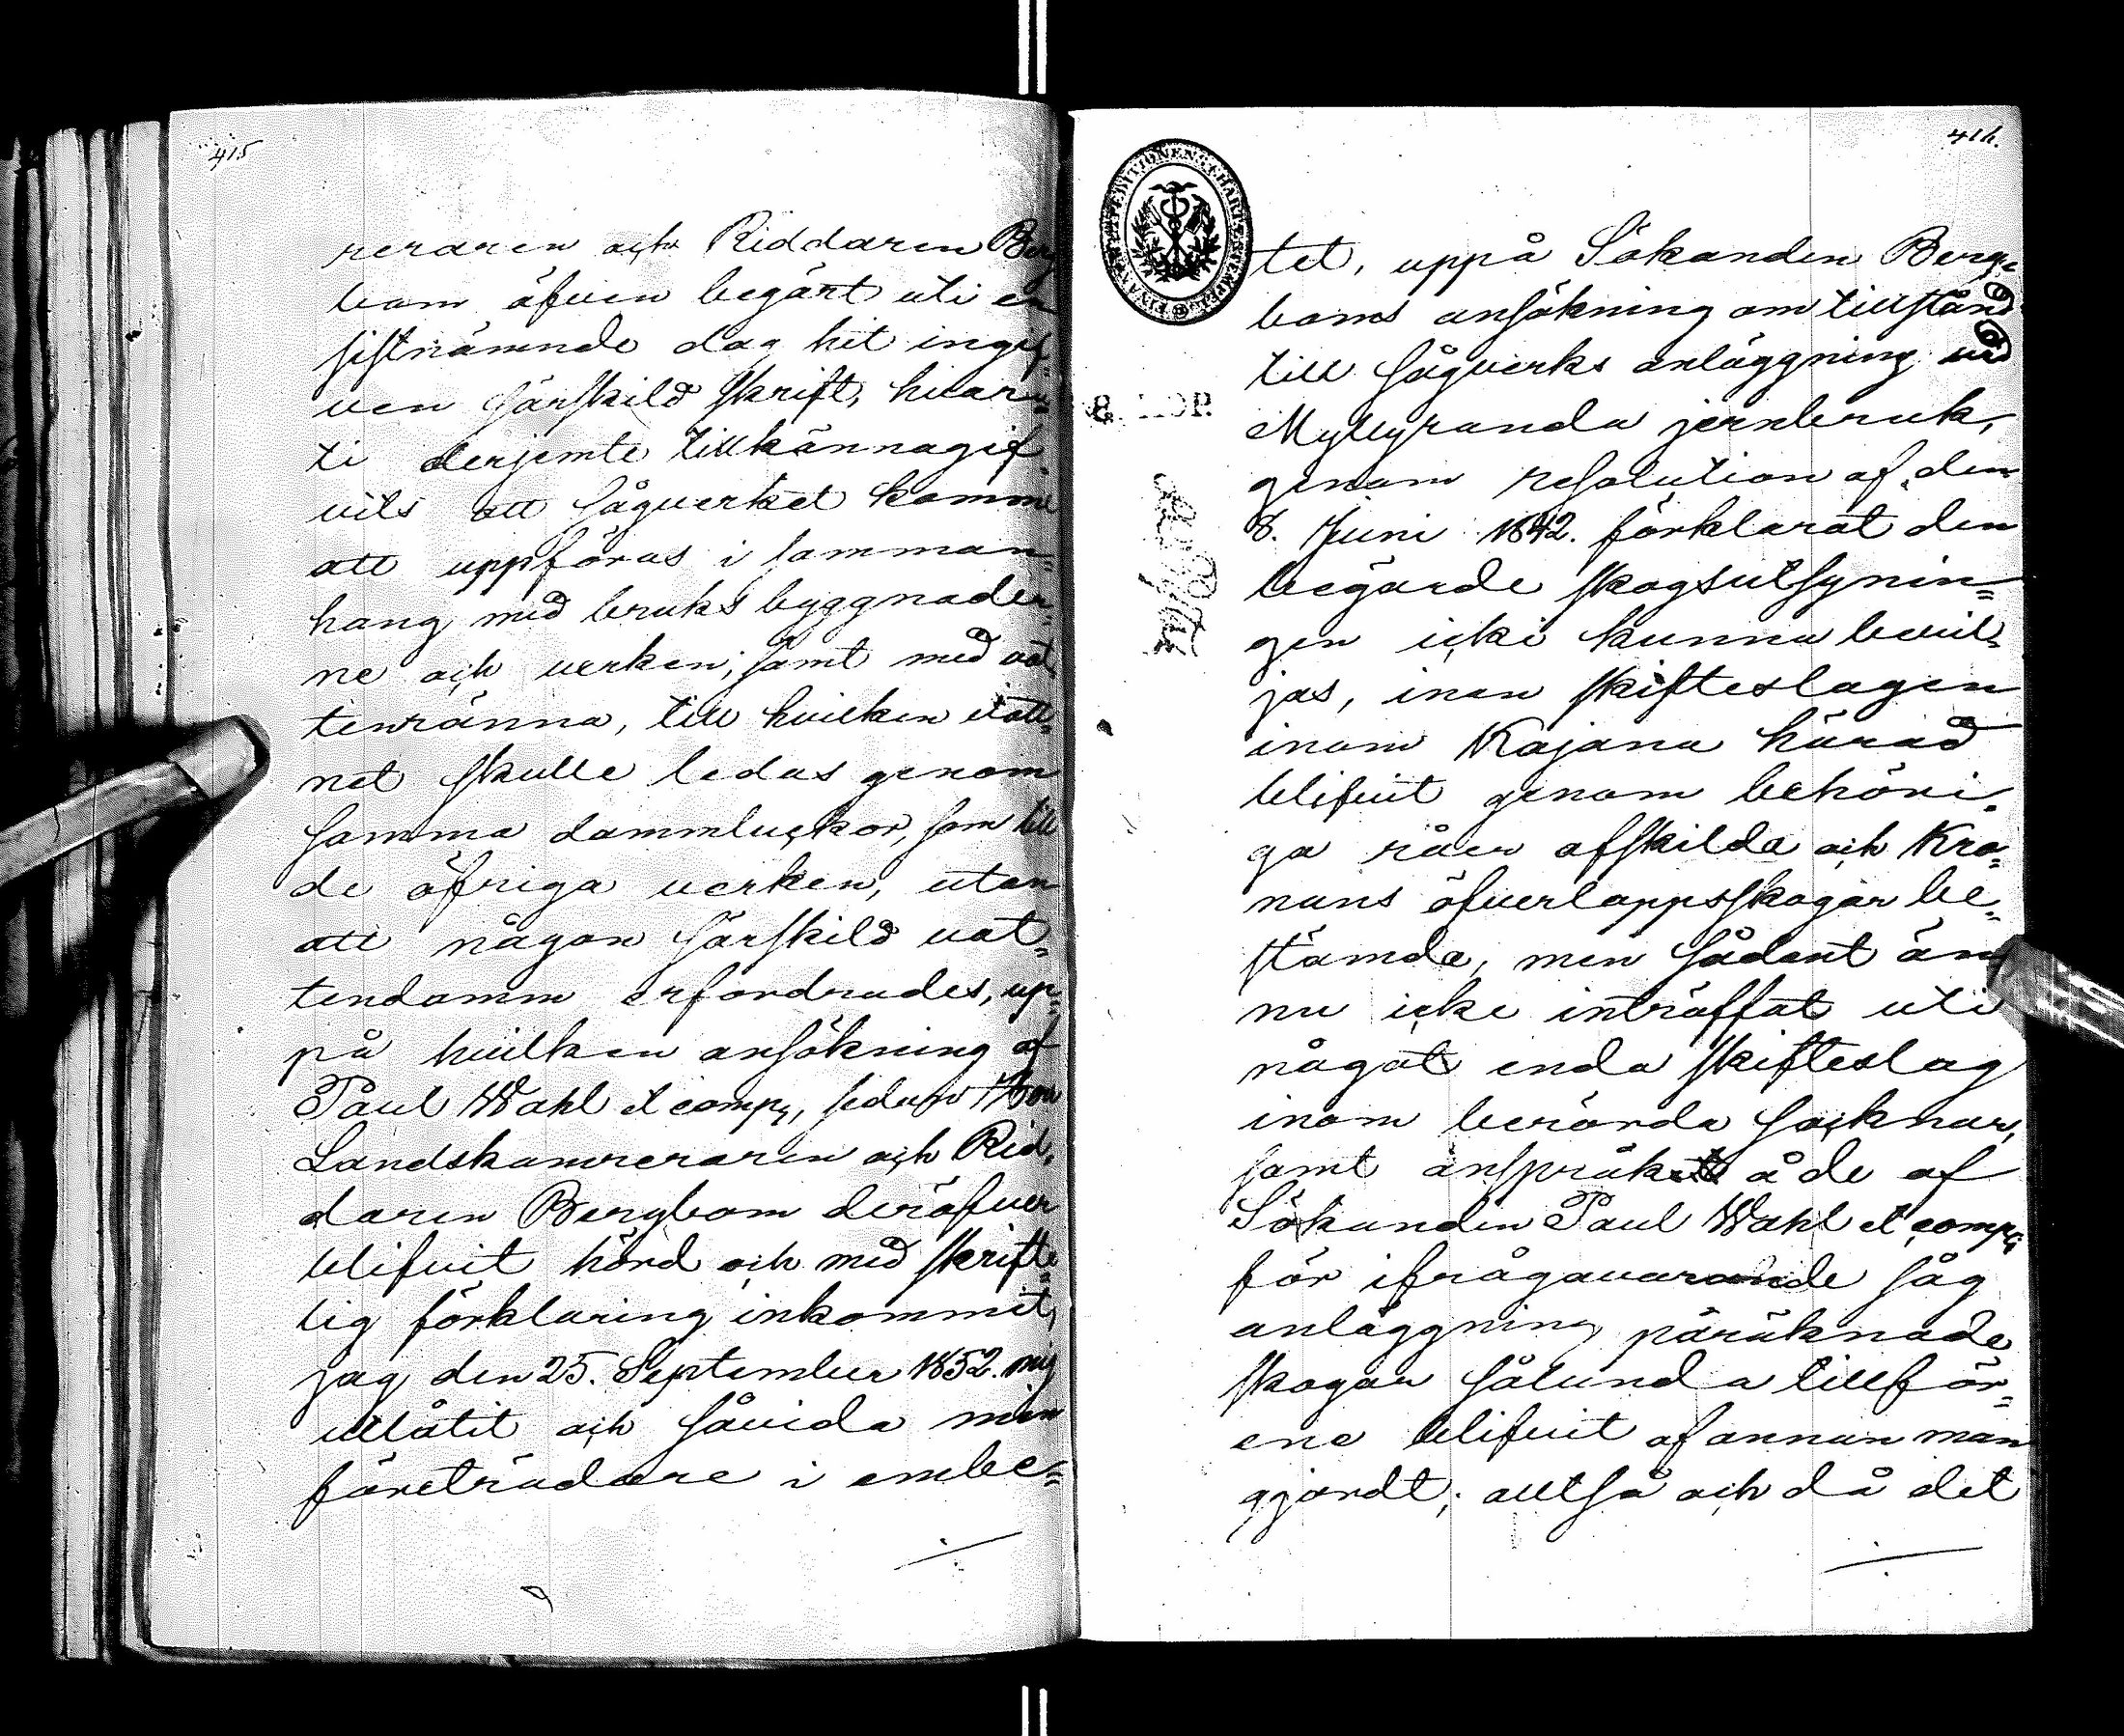 415
reraren och Riddaren Berg
bom äfven begärt uti en
sistnämnde dag hit ingif=
ven särskild skrift, hvaru=
ti derjemte tillkännagif=
vits att sågverket komme
att uppföras i samman=
hang med bruks byggnader=
ne och verken, samt med vat=
tenränna, till hvilken vatt=
net skulle ledas genom
samma dammluckor, som till
de öfriga verken, utan
att någon särskild vat=
tendamm erfordrades, up=
på hvilken ansökning af
Paul Wahl et comp:, sedan
Landskamreraren och Rid=
daren Bergbom deröfver
blifvit hörd och med skrift=
lig förklaring inkommit,
jag den 25. September 1852. mig
utlåtit och såvida min
företrädare i embe=
416.
FINANS EXPEDITIONENS CHARTÆ STEMPEL
8. KOP.
tet, uppå Sökanden Berg=
boms ansökning om tillstånd
till sågverks anläggning vid
Myllyranda jernbruk,
genom resolution af den
8. Juni 1842. förklarat den
begärde skogsutsynin=
gen icke kunna bevil=
jas, innan skifteslagen
inom Kajana härad
blifvit genom behöri=
ga råer afskilda och Kro=
nans öfverloppsskogar be=
stämda, men sådant än=
nu icke inträffat uti
något enda skifteslag
inom berörda socknar,
samt anspråk å de af
Sökanden Paul Wahl et comp:
för ifrågavarande såg
anläggning påräknade
skogar sålunda tillför=
ene blifvit af annan man
gjordt; alltså och då det